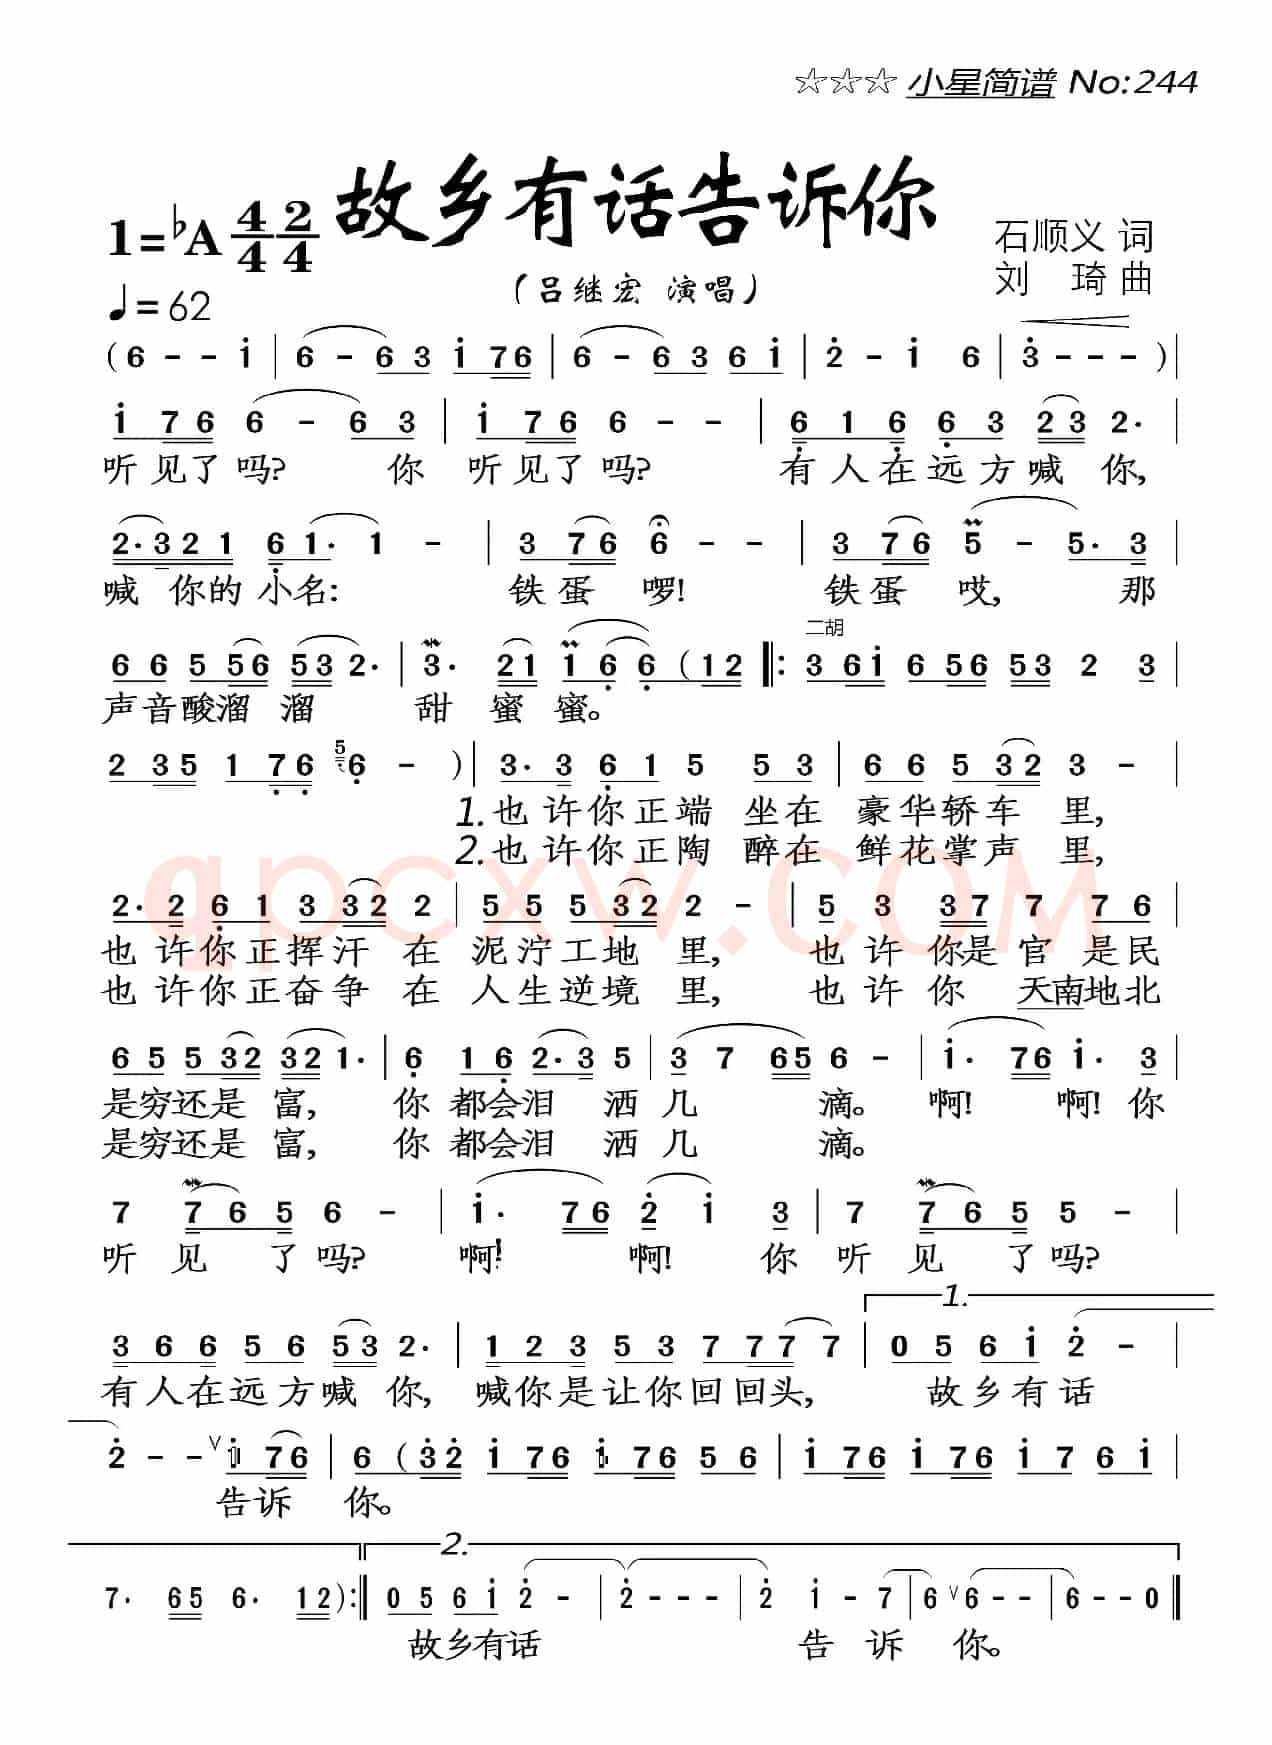 ☆☆☆ 小星简谱 No:244
故乡有话告诉你
1=♭A 4/4 2/4
石顺义 词
(吕继宏 演唱)
刘 琦 曲
♩=62
(6 - - i | 6 - 6 3 i 7 6 | 6 - 6 3 6 i | 2 - i 6 | 3 - - - ) |
i 7 6 6 - 6 3 | i 7 6 6 - - | 6 1 6 6 3 2 3 2. |
听见了吗? 你 听见了吗? 有人在远方喊 你,
2. 3 2 1 6 1. 1 - | 3 7 6 6 - - | 3 7 6 5 - 5. 3 |
喊 你的小名: 铁蛋 啰! 铁蛋 哎, 那
二胡
6 6 5 5 6 5 3 2. | 3. 2 1 1 6 6 (1 2 ‖: 3 6 i 6 5 6 5 3 2 3 |
声音酸溜 溜 甜 蜜 蜜。
2 3 5 1 7 6 5 6 - ) | 3. 3 6 1 5 5 3 | 6 6 5 3 2 3 - |
1.也许你正端 坐在 豪华轿车 里,
2.也许你正陶 醉在 鲜花掌声 里,
qpcxw.com
2. 2 6 1 3 3 2 2 | 5 5 5 3 2 2 - | 5 3 3 7 7 7 6 |
也许你正挥汗 在 泥泞工地 里, 也许 你是官 是民
也许你正奋争 在 人生逆境 里, 也许 你 天南地北
6 5 5 3 2 3 2 1. | 6 1 6 2. 3 5 | 3 7 6 5 6 - | i. 7 6 i. 3 |
是穷还是 富, 你 都会泪 洒 几 滴。 啊! 啊! 你
是穷还是 富, 你 都会泪 洒 几 滴。
7 7 6 5 6 - | i. 7 6 2 i 3 | 7 7 6 5 5 - |
听 见 了吗? 啊! 啊! 你 听 见 了吗?
1.
3 6 6 5 6 5 3 2. | 1 2 3 5 3 7 7 7 7 | 0 5 6 i 2 - |
有人在远方喊 你, 喊你是让你回回头, 故乡有话
2 - - ∨ i 7 6 | 6 (3 2 i 7 6 i 7 6 5 6 | i 7 6 i 7 6 i 7 6 i |
告诉 你。
2.
7. 6 5 6. 1 2) :‖ 0 5 6 i 2 - | 2 - - - | 2 i - 7 | 6 ∨ 6 - - | 6 - 0 ‖
故乡有话 告 诉 你。